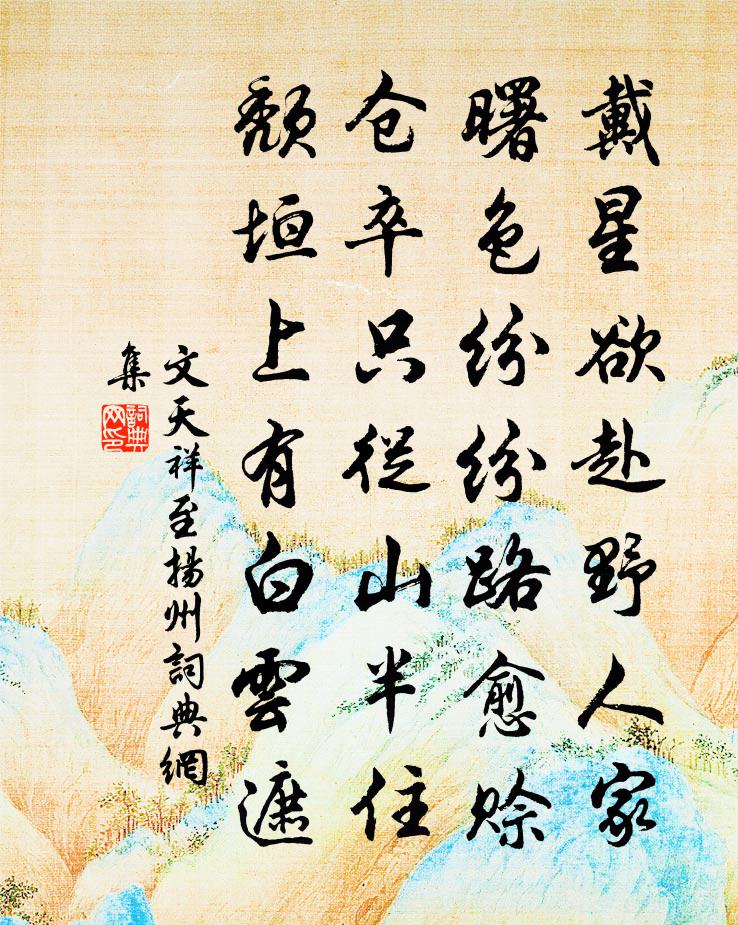 戴星欲赴野人家
曙色纷纷路愈赊
仓卒只从山半住
颓垣上有白雲遮
文天祥至揚州詞典網
集
詞典
网印